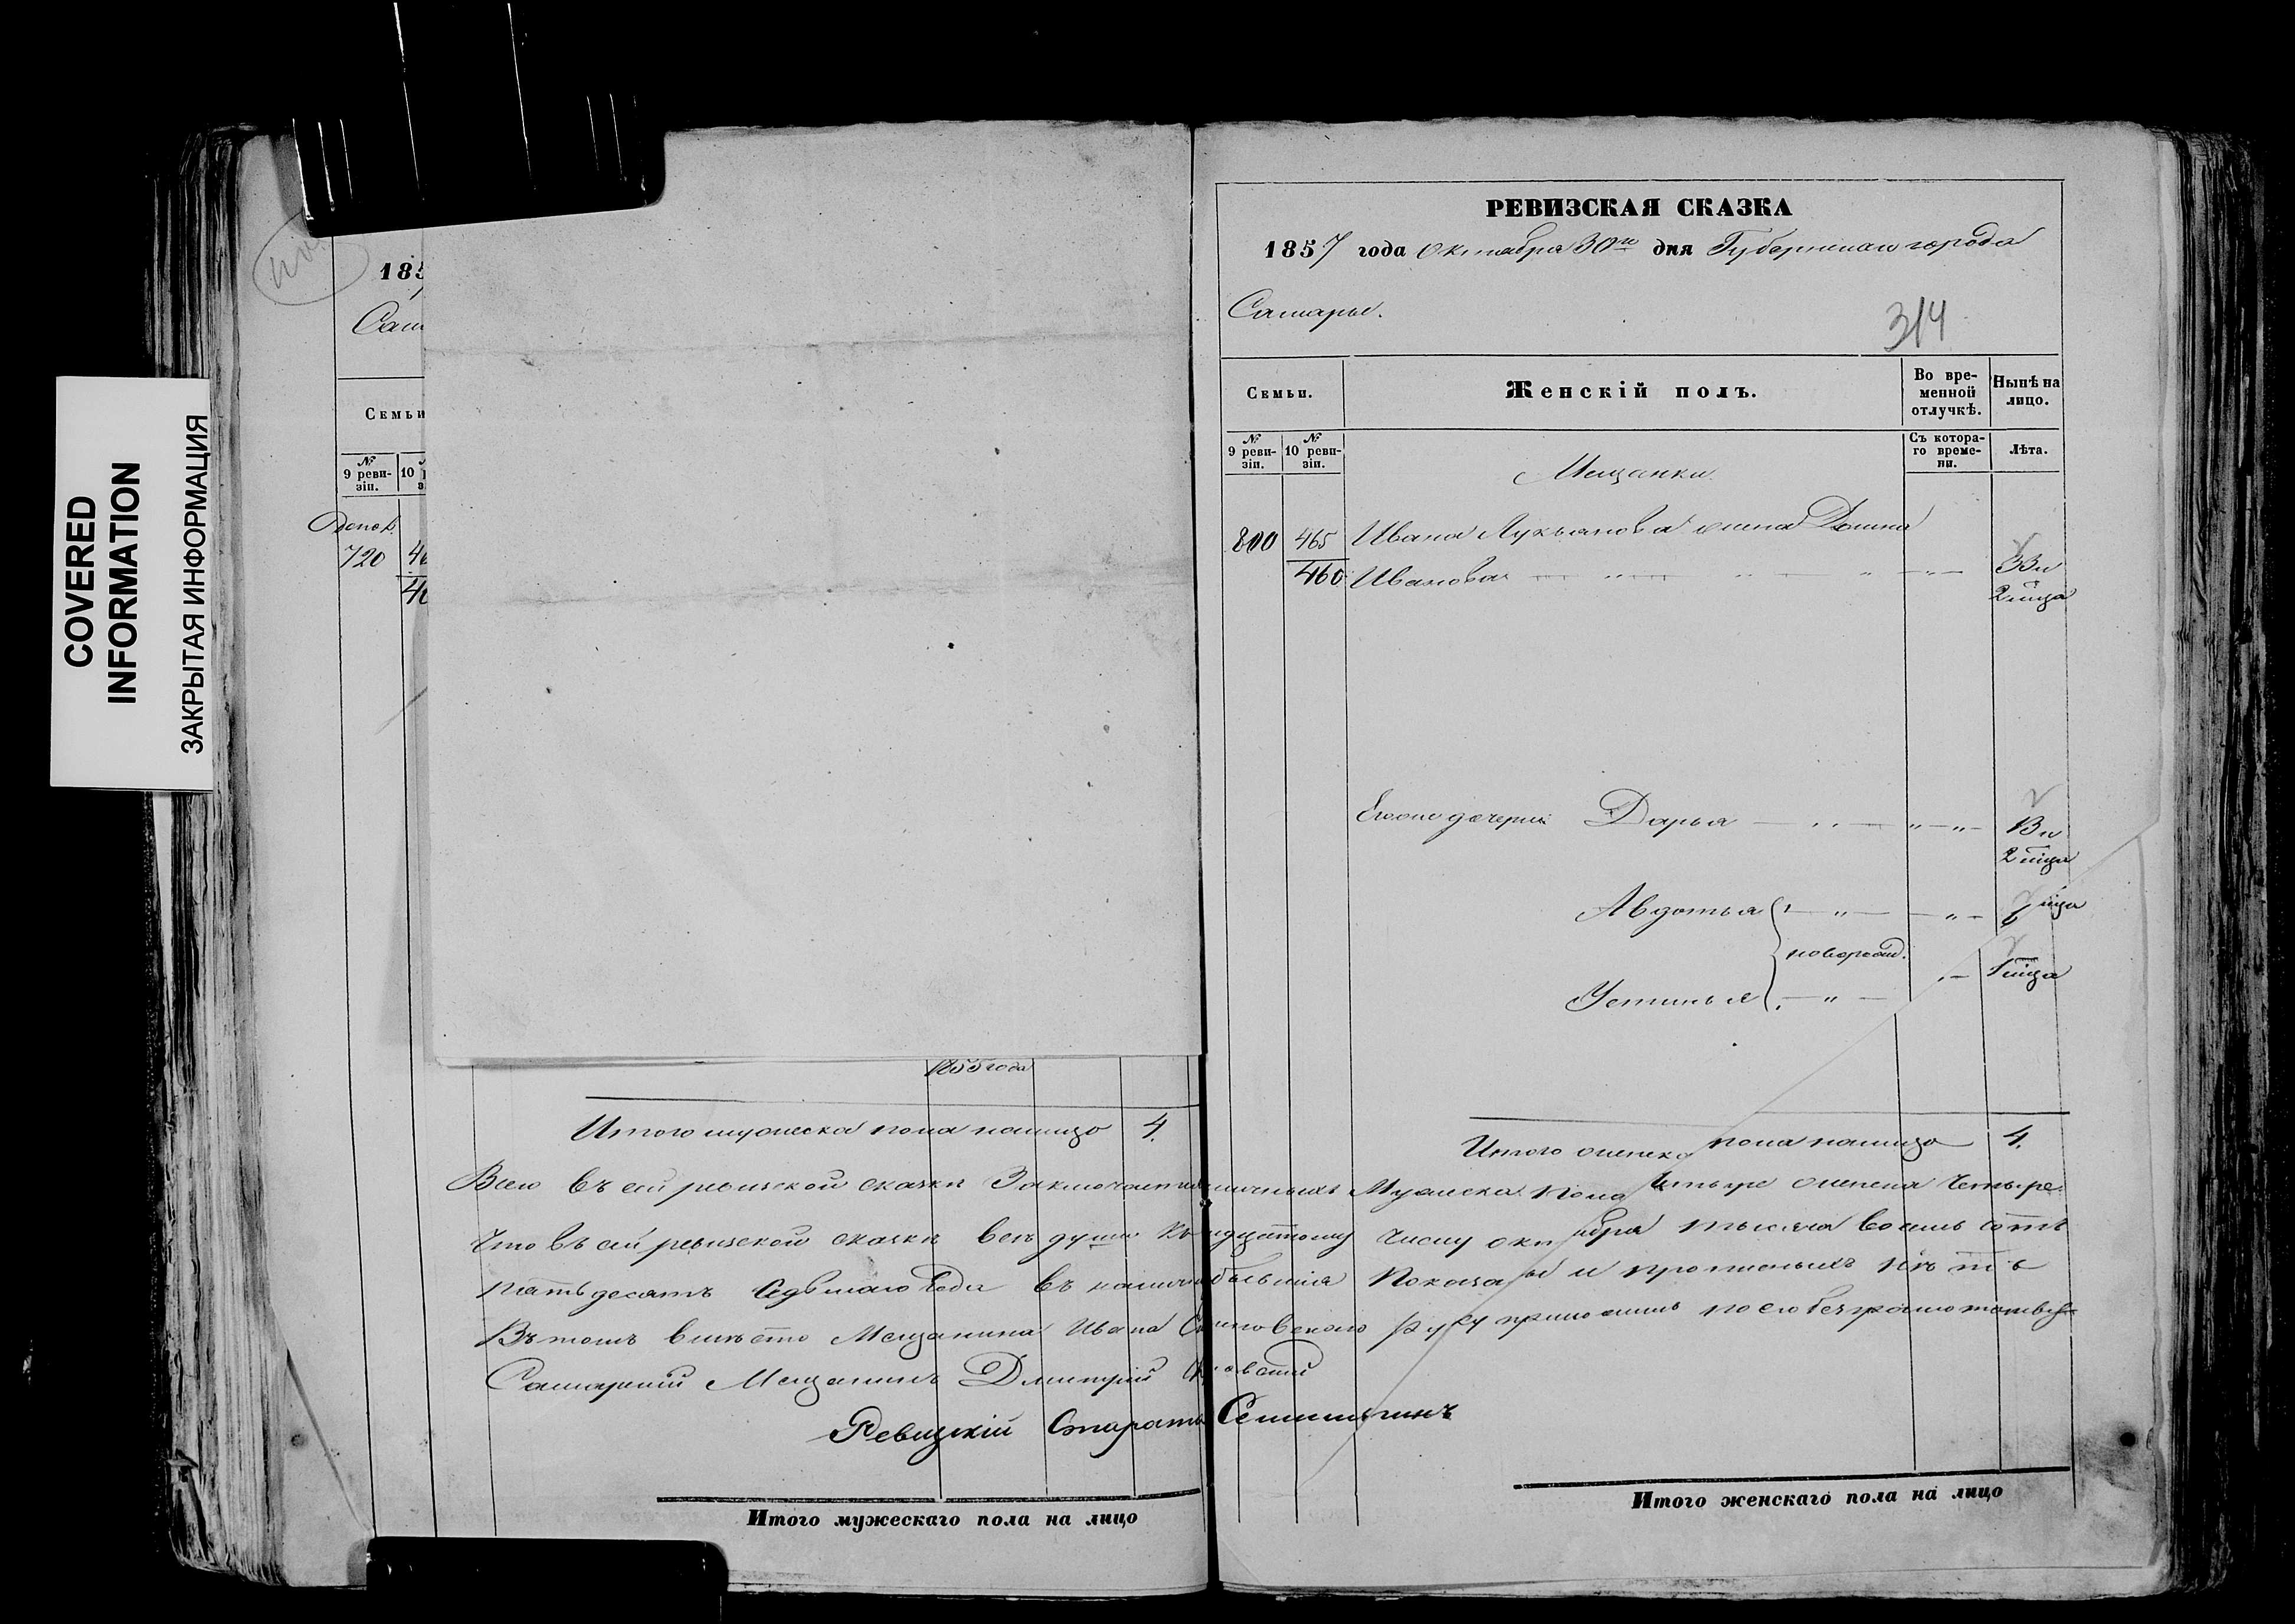 COVERED
INFORMATION
ЗАКРЫТАЯ ИНФОРМАЦИЯ
185
Сам
Семьи
№ 9 реви-зіи.
10
720
1855 года
Итого мужеска пола налицо 4.
РЕВИЗСКАЯ СКАЗКА
1857 года Октября 30го дня Губернскаго города
Самары.
314
Семьи.
Женскій полъ.
Во вре-менной отлучкѣ.
Нынѣ на лицо.
№ 9 реви-зіи.
№ 10 реви-зіи.
Съ котора-го време-ни.
Лѣта.
Мещанки
800 465 Ивана Лукьянова жена Домна
460 Иванова
Дарья
Авдотья
новорожд.
Устинья
Итого женска пола налицо 4.
Всего въ сей ревизской сказкѣ Заключается наличныхъ Мужеска пола четыре женска Четыре
Что въ сей ревизской сказкѣ всѣ души къ числу октября тысяча восемь сотъ
пятьдесятъ Седьмаго Года въ наличности бывшія показаны и прописныхъ нѣтъ
Въ томъ вмѣсто Мещанина Ивана руку приложилъ по его безграмотству
Самарскій Мещанинъ Дмитрій
Ревизскій Староста
Итого мужескаго пола на лицо
Итого женскаго пола на лицо